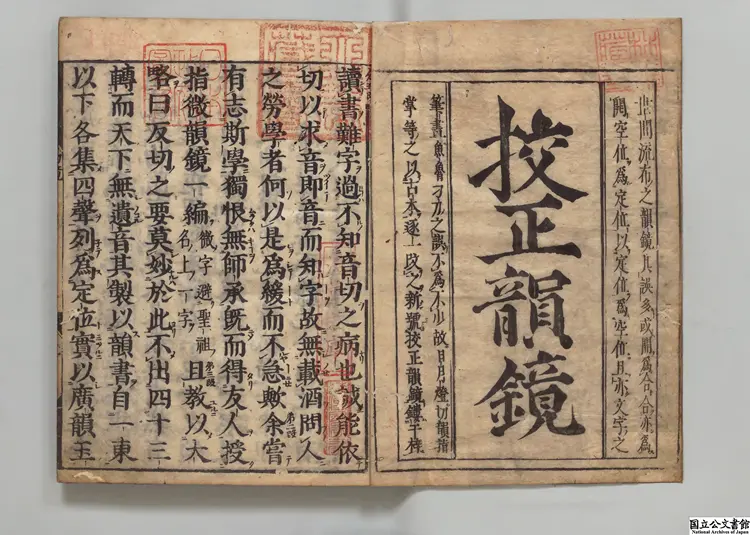 世間流布之韻鏡其誤多或開爲合合亦爲
開空位爲定位以定位爲空位且亦文字之
挍正韻鏡
筆畫魚魯刁刀之誤不爲不少故日月燈切韻指
掌等之以古本逐一改之新號挍正韻鏡鏤于梓
讀書難字過不知音切之病也誠能依
切以求音即音而知字故無載酒問人
之勞學者何以是爲緩而不急歟余嘗
有志斯學獨恨無師承既而得友人授
指微韻鏡一編微字避聖祖名上一字且教以大
略曰反切之要莫妙於此不出四十三
轉而天下無遺音其製以韻書自一東
以下各集四聲列爲定位實以廣韻玉
国立公文書館
National Archives of Japan